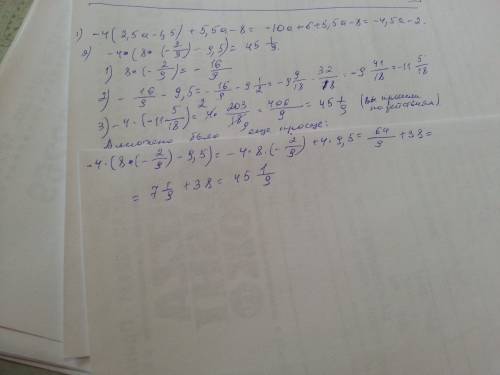 1) -4(2,5a - 1,5) + 5,5a - 8 = -10a + 6 + 5,5a - 8 = -4,5a - 2.
2) -4*(8*(-2/9) - 9,5) = 45 1/9.
1) 8*(-2/9) = -16/9
2) -16/9 - 9,5 = -16/9 - 9 1/2 = -9 9/18 - 32/18 = -9 41/18 = -11 5/18
3) -4*(-11 5/18) = 4 * 203/18 = 406/9 = 45 1/9 (вы просили по действиям)
А можно было еще проще:
-4*(8*(-2/9) - 9,5) = -4*8*(-2/9) + 4*9,5 = 64/9 + 38 =
= 7 1/9 + 38 = 45 1/9